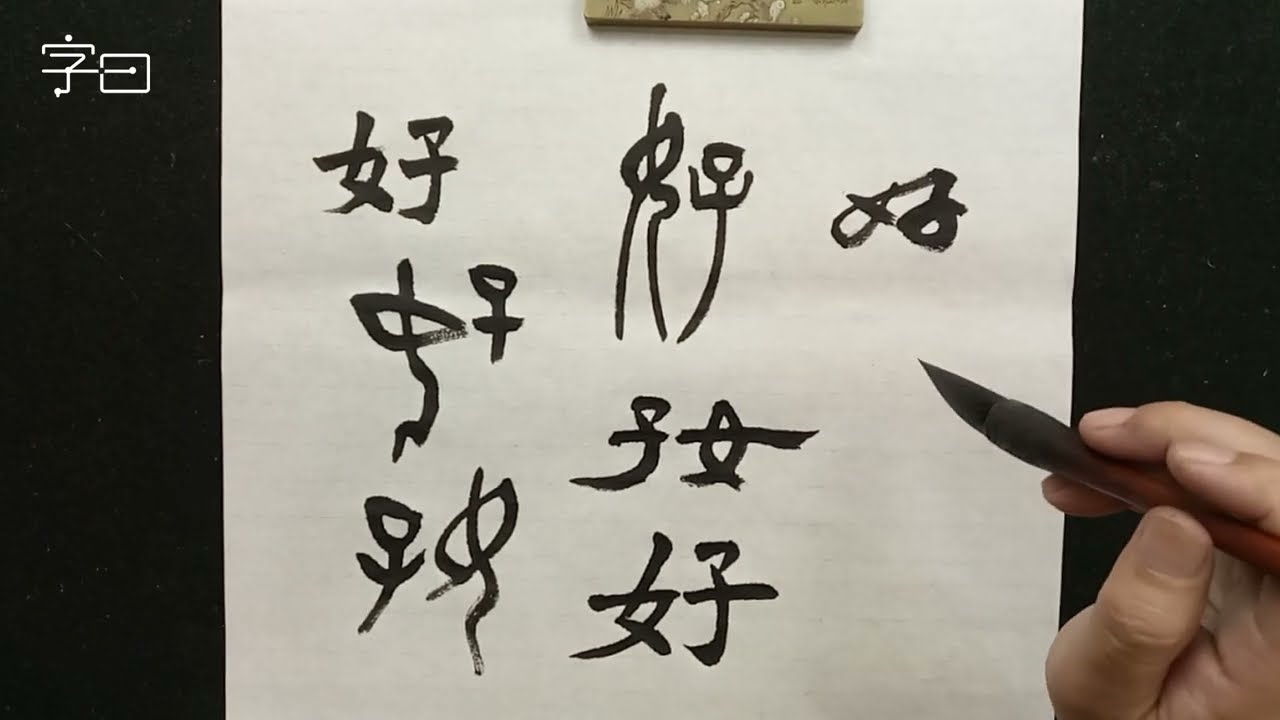 字曰
好
好
好
好
好
好
好